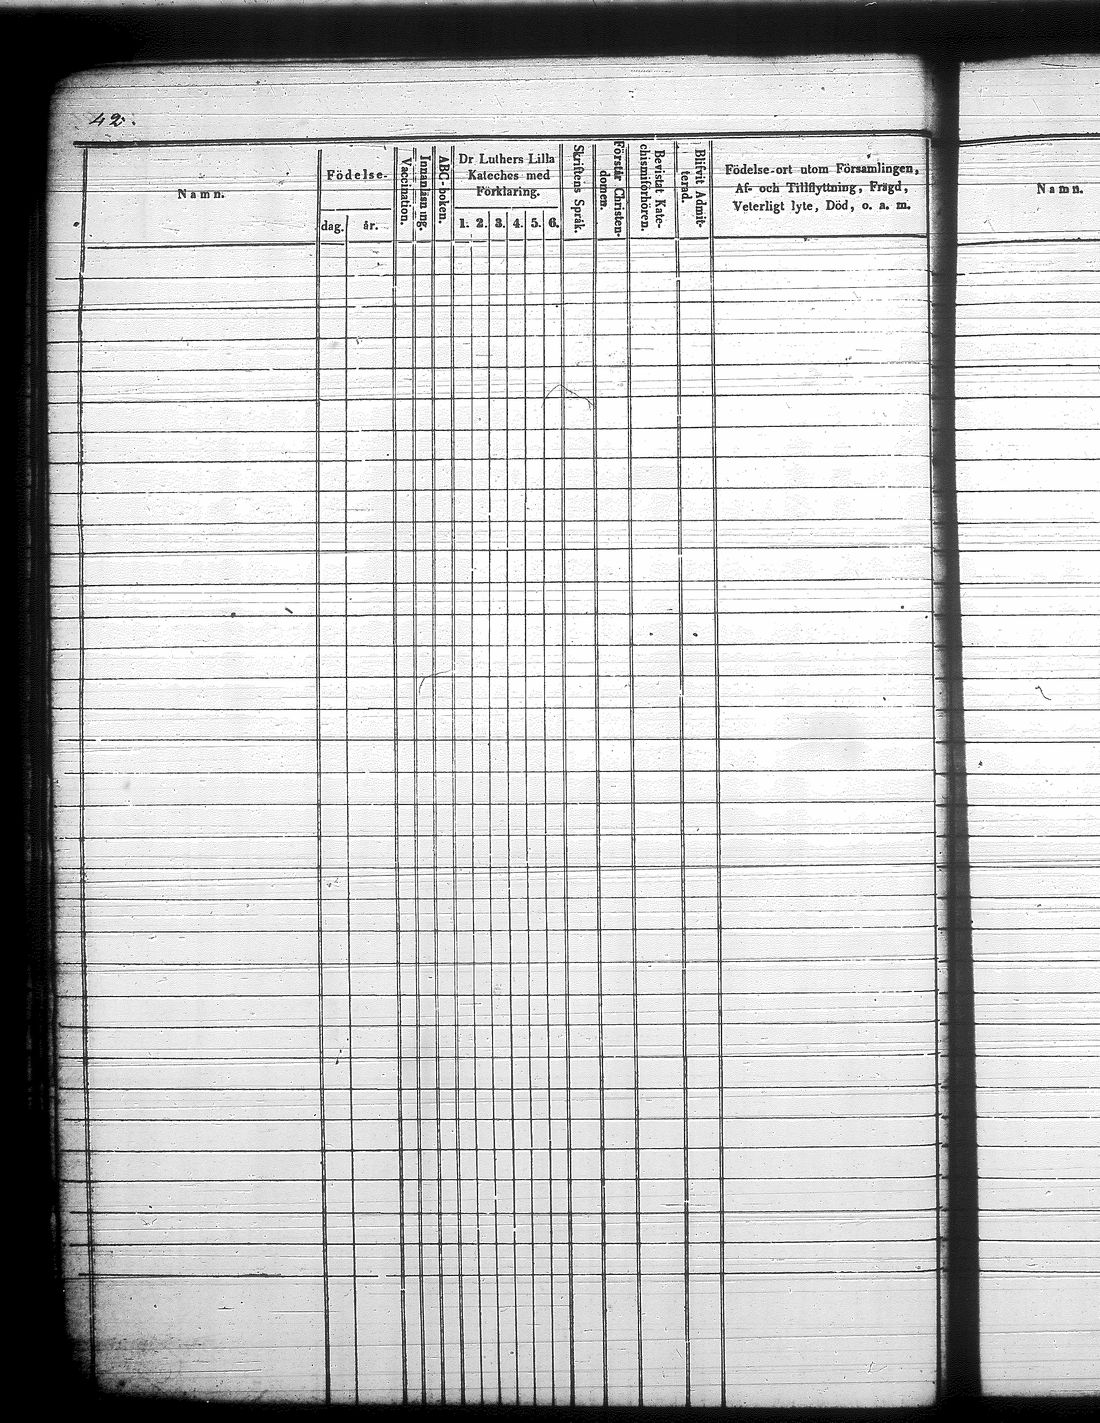 42.
Namn.
Födelse-
dag.
år.
Vaccination.
Innanläsning.
ABC-boken.
Dr Luthers Lilla
Kateches med
Förklaring.
1. 2. 3. 4. 5. 6.
Skriftens Språk.
Förstår Christen-
domen.
Bevistat Kate-
chismiförhören.
Blifvit Admit-
terad.
Födelse-ort utom Församlingen,
Af- och Tillflyttning, Frägd,
Veterligt lyte, Död, o. a. m.
Namn.